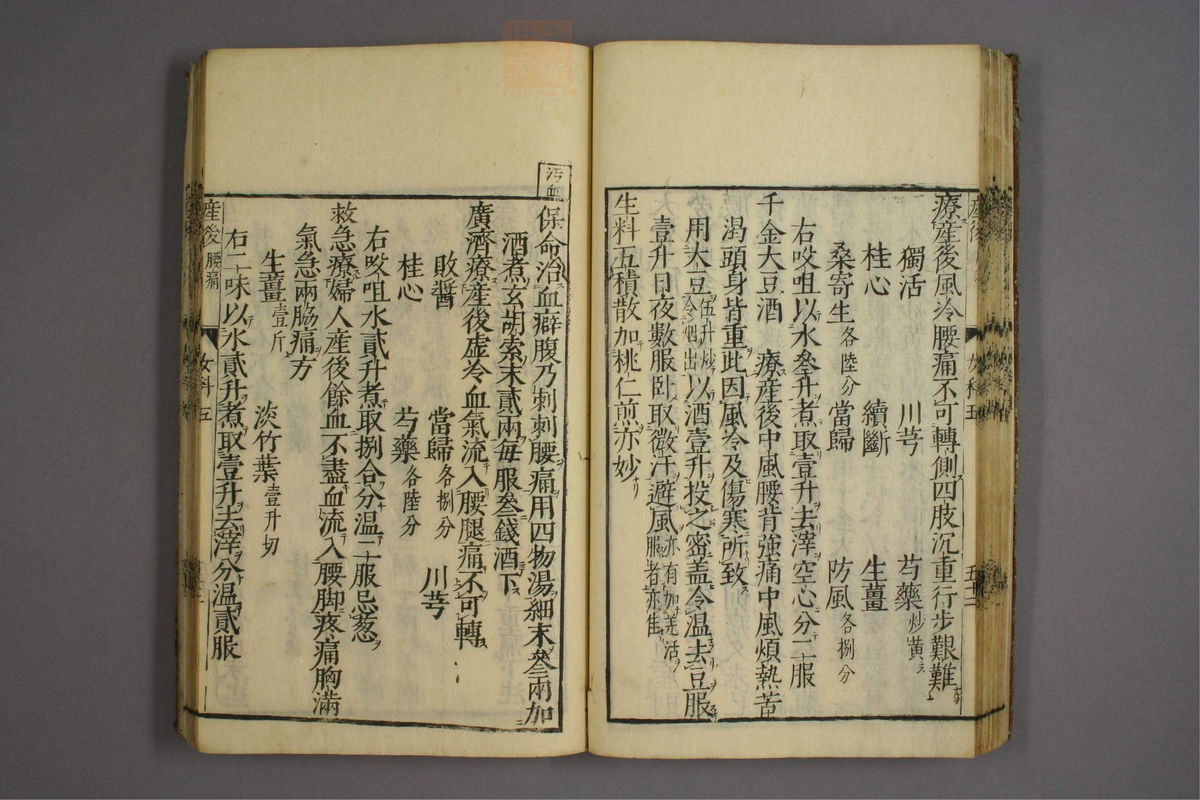 療産後風冷腰痛不可轉側四肢沉重行步艱難
獨活 川芎 芍藥炒黄
桂心 續斷 生薑
桑寄生各陸分 當歸 防風各捌分
右㕮咀以水叄升煮取壹升去滓空心分二服
千金大豆酒 療産後中風腰背強痛中風煩熱苦
渴頭身皆重此因風冷及傷寒所致
用大豆伍升炒令烟出以酒壹升投之密盖令温去豆服
壹升日夜數服卧取微汗避風亦有加羌活服者亦佳
生料五積散加桃仁煎亦妙
汚血
保命治血癖腹乃刺刺腰痛用四物湯細末叄兩加
酒煮玄胡索末貳兩每服叄錢酒下
廣濟療産後虚冷血氣流入腰腿痛不可轉
敗醬 當歸各捌分 川芎
桂心 芍藥各陸分
右㕮咀水貳升煮取捌合分温二服忌葱
救急療婦人産後餘血不盡血流入腰脚疼痛胸滿
氣急兩脇痛方
生薑壹斤 淡竹葉壹升切
右二味以水貳升煮取壹升去滓分温貳服
産後腰痛 女科五